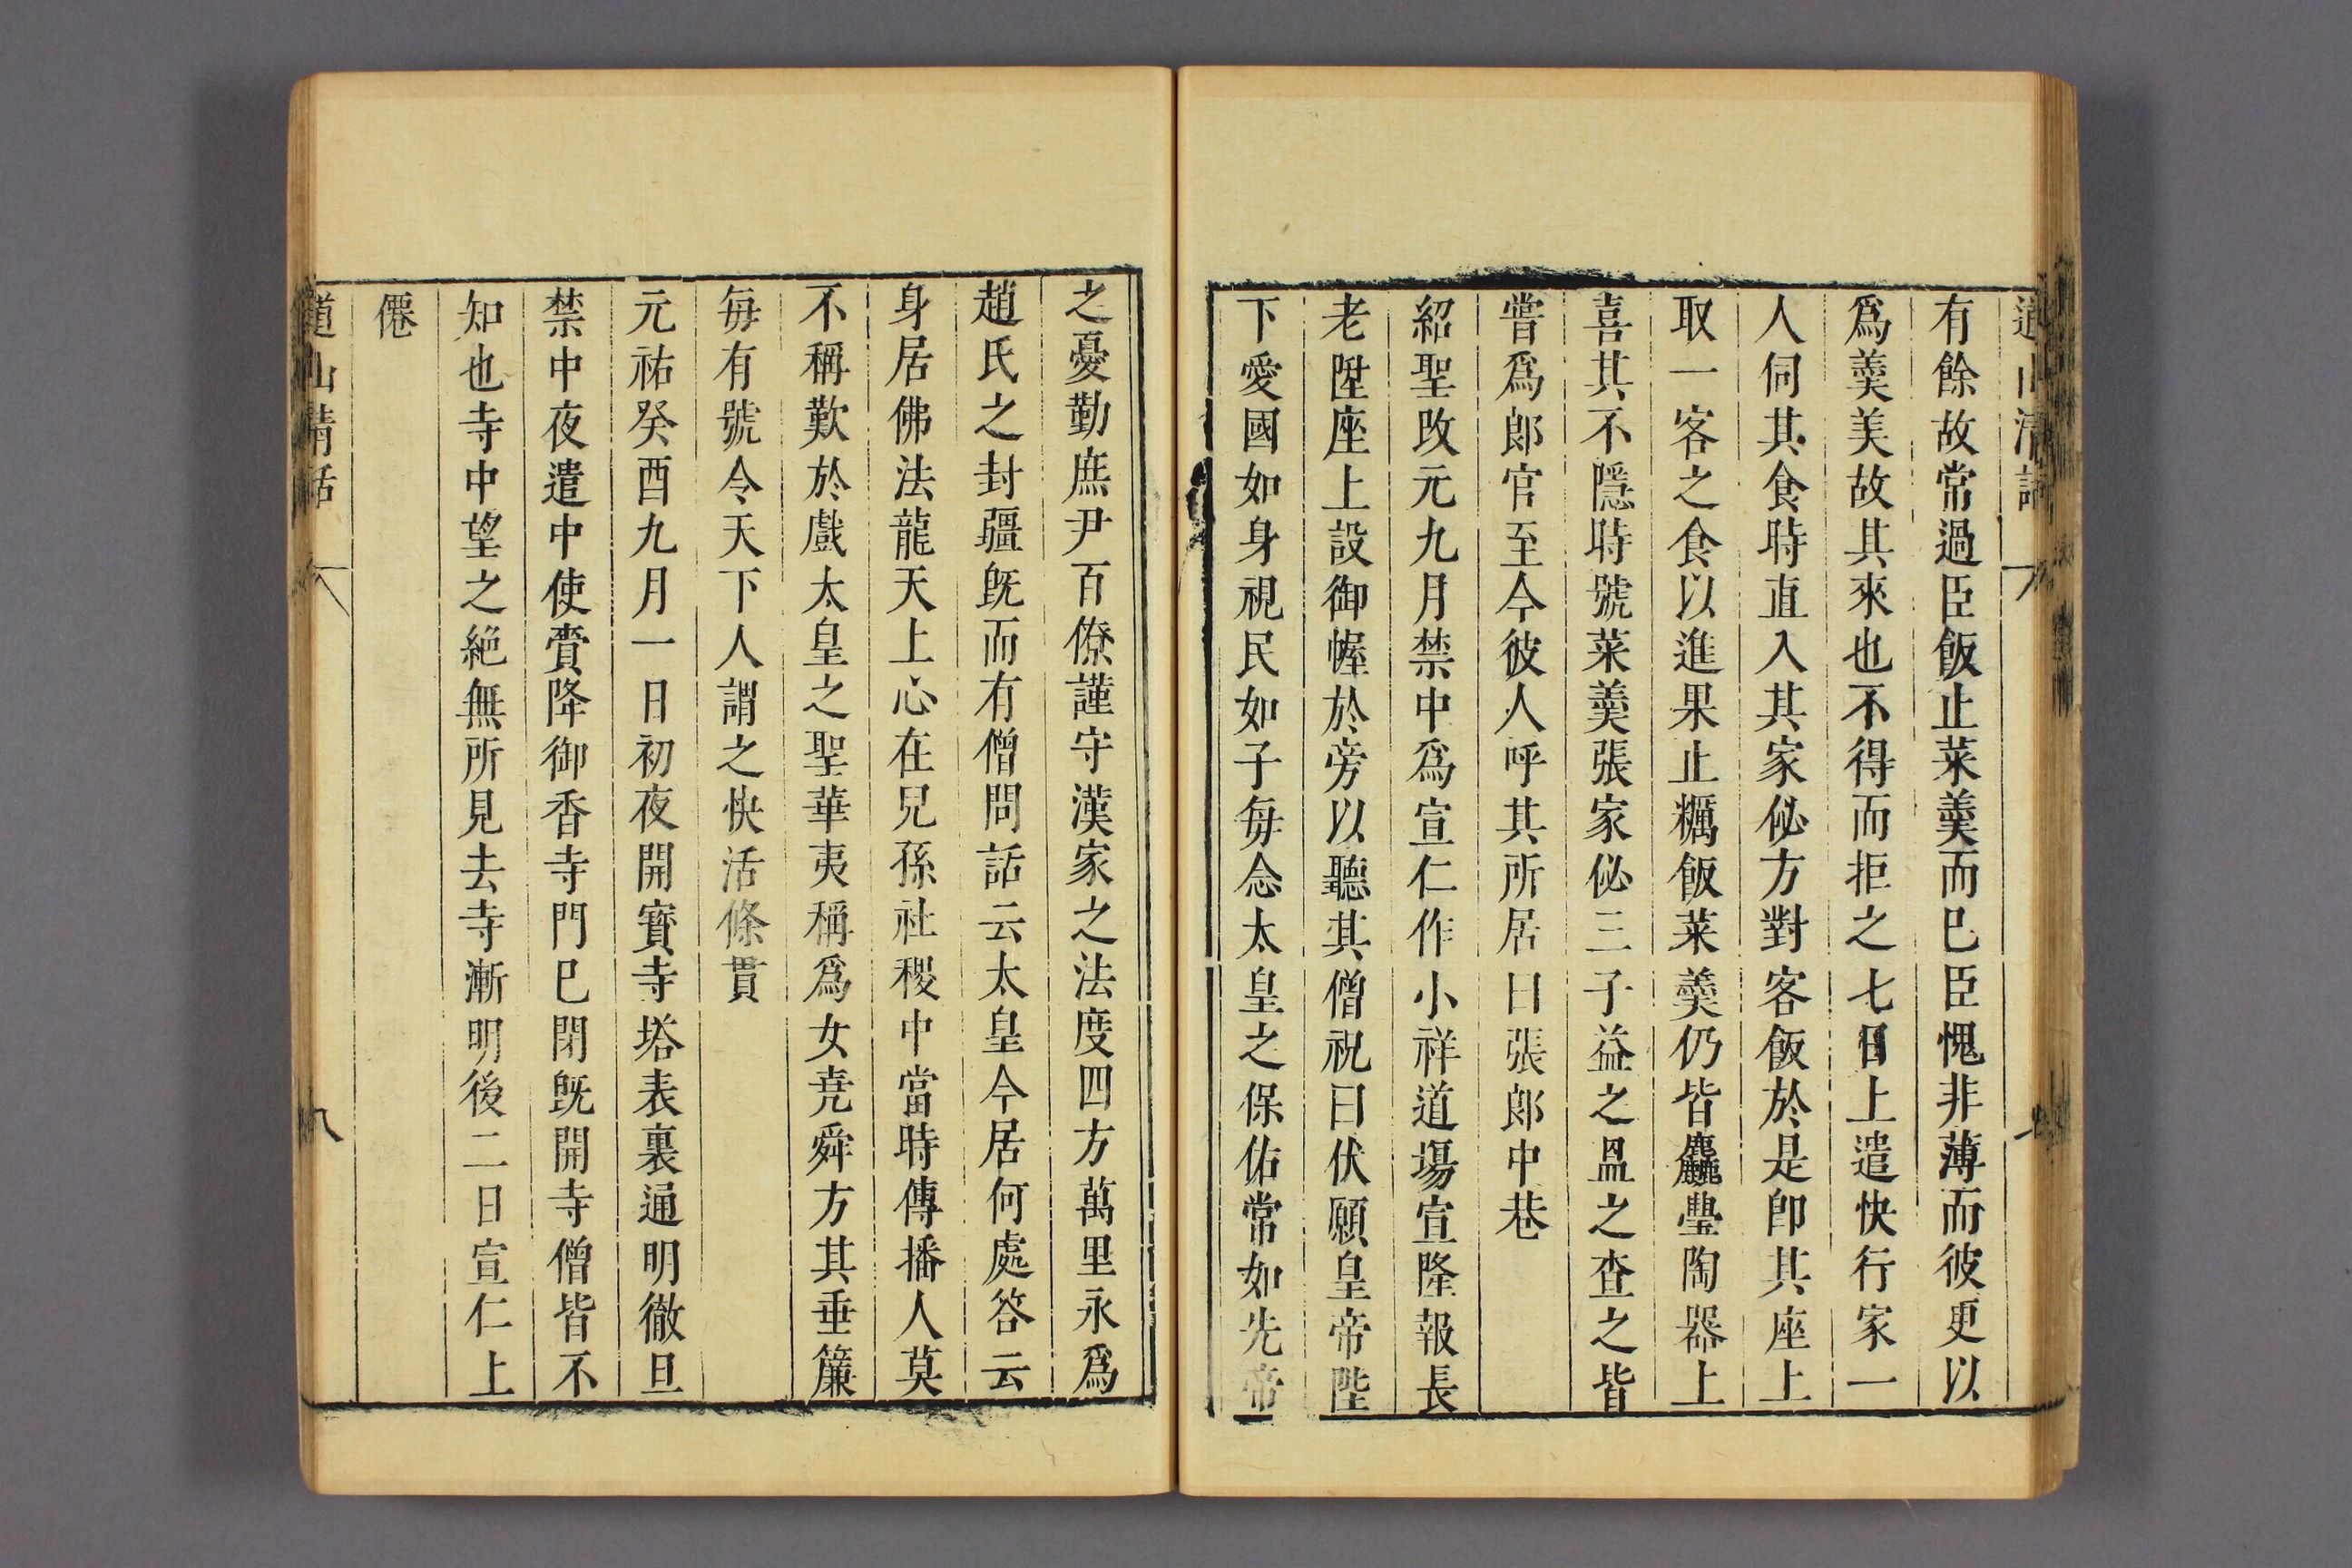 有餘故常過臣飯止菜羹而已臣愧非薄而彼更以
爲羹美故其來也不得而拒之七日上遣快行家一
人伺其食時直入其家佖方對客飯於是卽其座上
取一客之食以進果止糲飯菜羹仍皆麤壘陶器上
喜其不隱時號菜羹張家佖三子益之昷之查之皆
嘗爲郎官至今彼人呼其所居曰張郎中巷
紹聖改元九月禁中爲宣仁作小祥道場宣隆報長
老陞座上設御幄於旁以聽其僧祝曰伏願皇帝陛
下愛國如身視民如子每念太皇之保佑常如先帝
之憂勤庶尹百僚謹守漢家之法度四方萬里永爲
趙氏之封疆旣而有僧問話云太皇今居何處答云
身居佛法龍天上心在兒孫社稷中當時傳播人莫
不稱歎於戲太皇之聖華夷稱爲女堯舜方其垂簾
每有號令天下人謂之快活條貫
元祐癸酉九月一日初夜開寶寺塔表裏通明徹旦
禁中夜遣中使賫降御香寺門已閉旣開寺僧皆不
知也寺中望之絶無所見去寺漸明後二日宣仁上
僊
道山清話
八